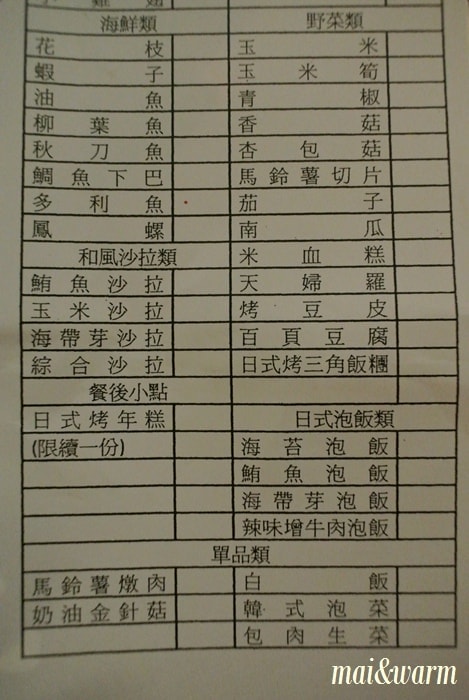 海鮮類
花枝
蝦子
油魚
柳葉魚
秋刀魚
鯛魚下巴
多利魚
鳳螺
和風沙拉類
鮪魚沙拉
玉米沙拉
海帶芽沙拉
綜合沙拉
餐後小點
日式烤年糕
(限續一份)
野菜類
玉米
玉米筍
青椒
香菇
杏包菇
馬鈴薯切片
茄子
南瓜
米血糕
天婦羅
烤豆皮
百頁豆腐
日式烤三角飯糰
日式泡飯類
海苔泡飯
鮪魚泡飯
海帶芽泡飯
辣味增牛肉泡飯
單品類
馬鈴薯燉肉
奶油金針菇
白飯
韓式泡菜
包肉生菜
mai&warm